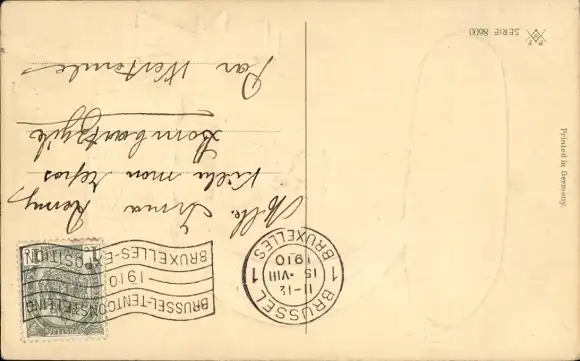 Mlle. Irma Remy
Villa mon repos
Lombartzyde
Par Westende
BRUSSEL-TENTOONSTELLING
1910
BRUXELLES-EXPOSITION
1 BRUSSEL 1
11-12
15-VIII
1910
BRUXELLES
SERIE 8600
Printed in Germany.